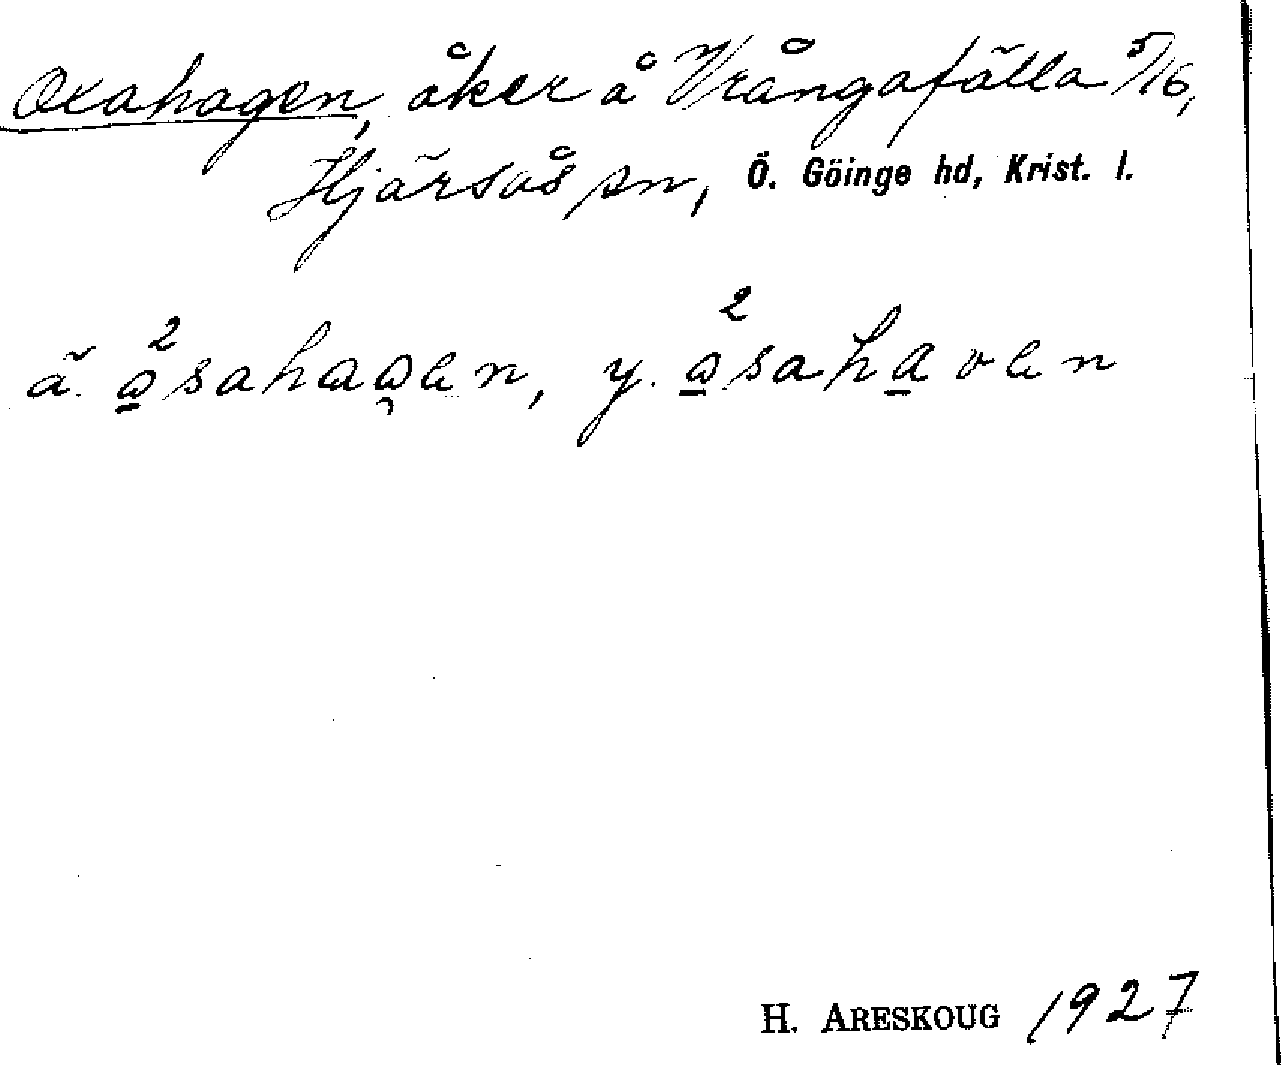 Oxahagen, åker å Vrångafälla 5/16,
Hjärsås sn, Ö. Göinge hd, Krist. l.
ä. ²åsahaꞷen, y. ²åsahaven
H. ARESKOUG 1927